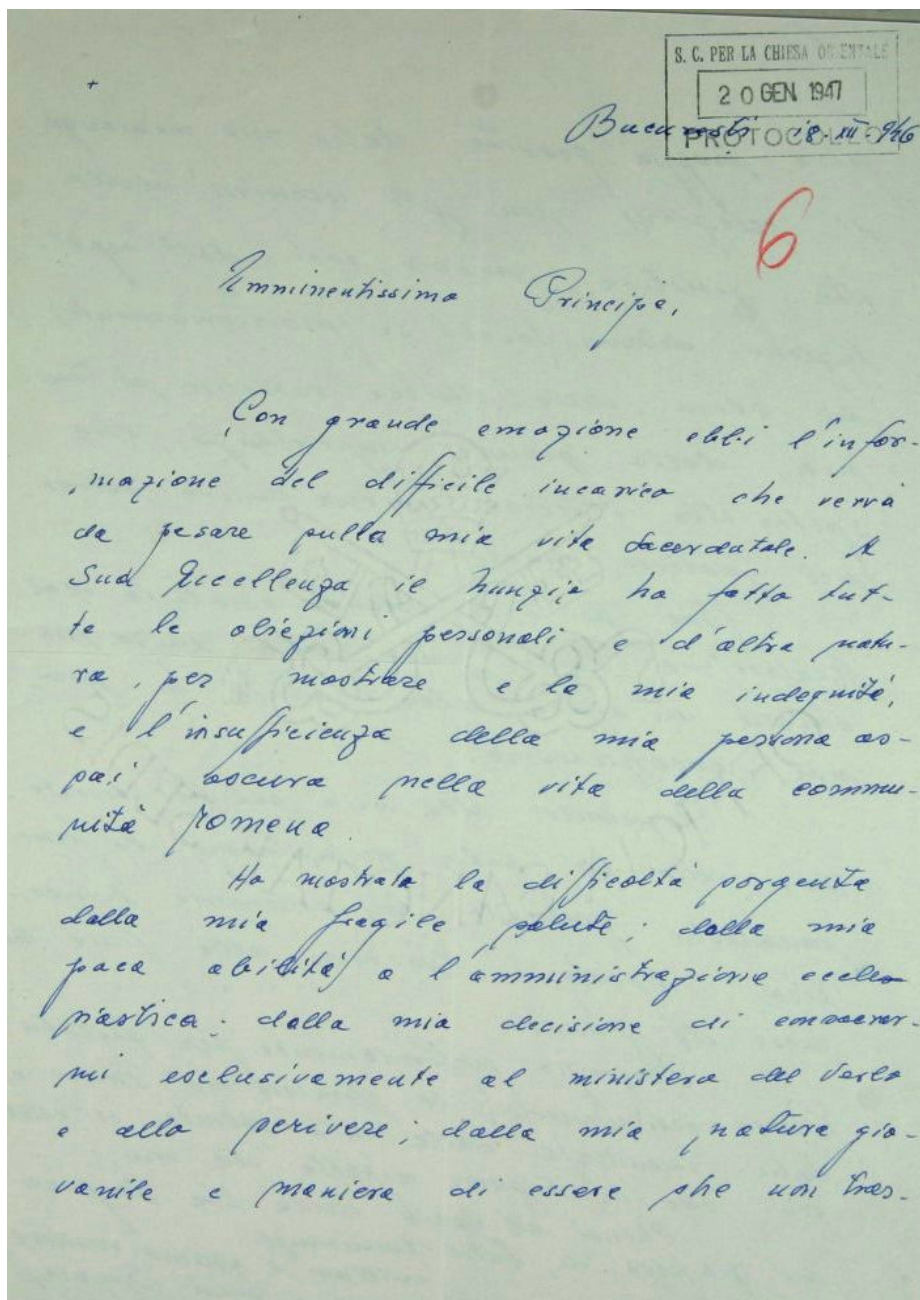 +
S. C. PER LA CHIESA ORIENTALE
20 GEN 1947
PROTOCOLLO
Bucuresti 18. XII. 946
6
Emminentissimo Principe,
Con grande emozione ebbi l'infor-
mazione del difficile incarico che verrà
da pesare sulla mia vita sacerdotale. A
Sua Eccellenza il Nunzio ho fatto tut-
te le obiezioni personali e d'altra natu-
ra, per mostrare e la mia indegnità,
e l'insufficienza della mia persona as-
sai oscura nella vita della commu-
nità romena.
Ho mostrato la difficoltà sorgente
dalla mia fragile salute; dalla mia
poca abilità a l'amministrazione eccle
siastica; dalla mia decisione di consacrar-
mi esclusivamente al ministero del Verbo
e allo scrivere; dalla mia natura gio-
vanile e maniera di essere che non tras-